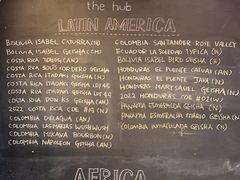 the hub
LATIN AMERICA
BOLIVIA ISABEL CATURRA (N)
BOLIVIA ISABEL GEISHA (N)
COSTA RICA (N)
COSTA RICA SOLIS CORDERO GEISHA
COSTA RICA ITADAKI GEISHA
COSTA RICA ITADAKI GEISHA LOT 44
COSTA RICA ITADAKI GEISHA LOT 45
COSTA RICA DON KS GEISHA (N)
2022 COSTA RICA COE #19 (N)
COLOMBIA DELAGUA (AN)
COLOMBIA LAS MARIAS WUSHWUSH
COLOMBIA MIKAVA BOURBON (N)
COLOMBIA NAPOLEON GEISHA (N)
COLOMBIA SANTANDER ROSE VALLEY
ECUADOR LA SOLEDAD TYPICA (N)
BOLIVIA ISABEL BIRD GEISHA (H)
HONDURAS EL PUENTE CATUAI (AN)
HONDURAS EL PUENTE JAVA (N)
HONDURAS MARYSABEL GEISHA (N)
2022 HONDURAS COE #02 (W)
PANAMA ESMERALDA GEISHA (N)
PANAMA ESMERALDA MARIO GEISHA (N)
COLOMBIA INMACULADA GEISHA (N)
AFRICA